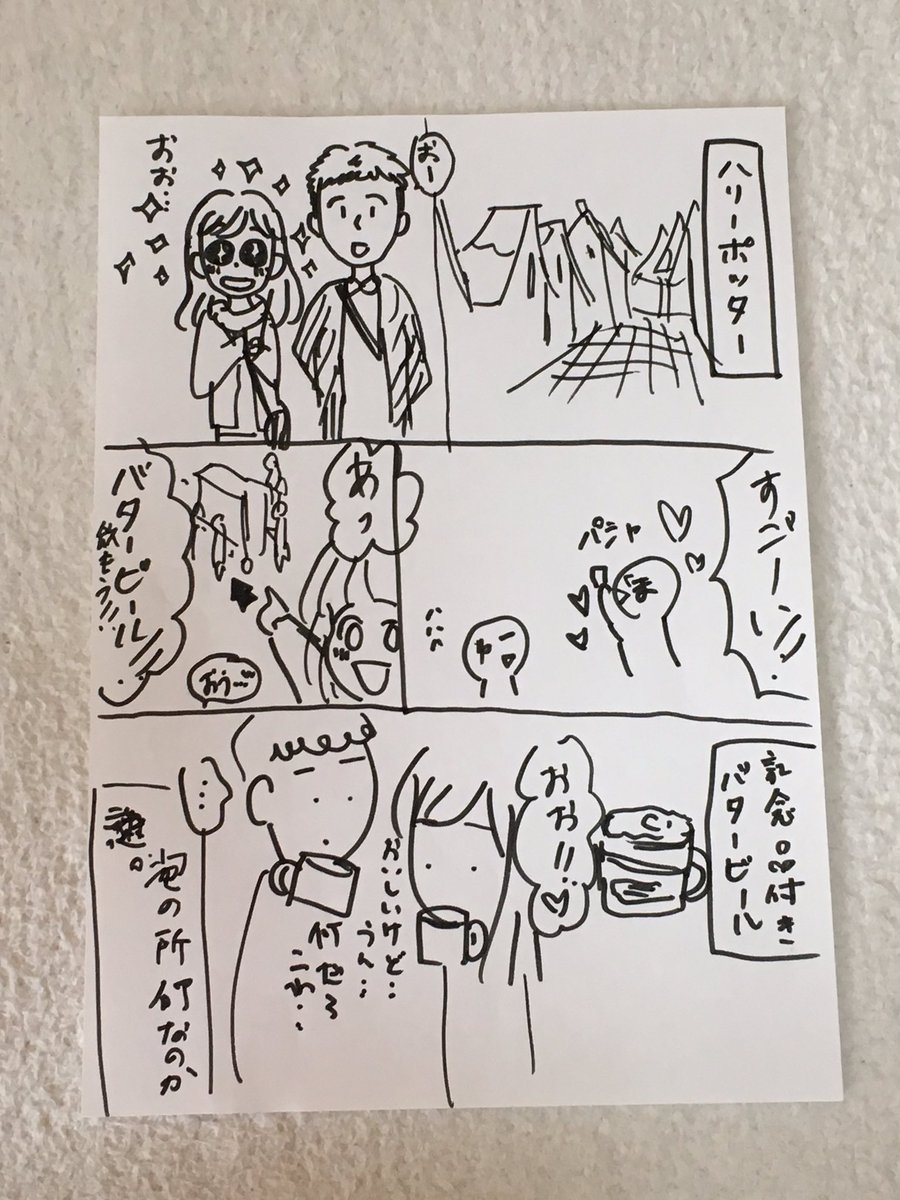 ハリーポッター
おー
おお…
すごーい!!
パシャ
ごま
あっ
バタービール
飲もう!!
おう…
記念品付き
バタービール
おお!!
おいしいけど…
うん…
何だろ
これ…
…
泡の所何なのか
謎。